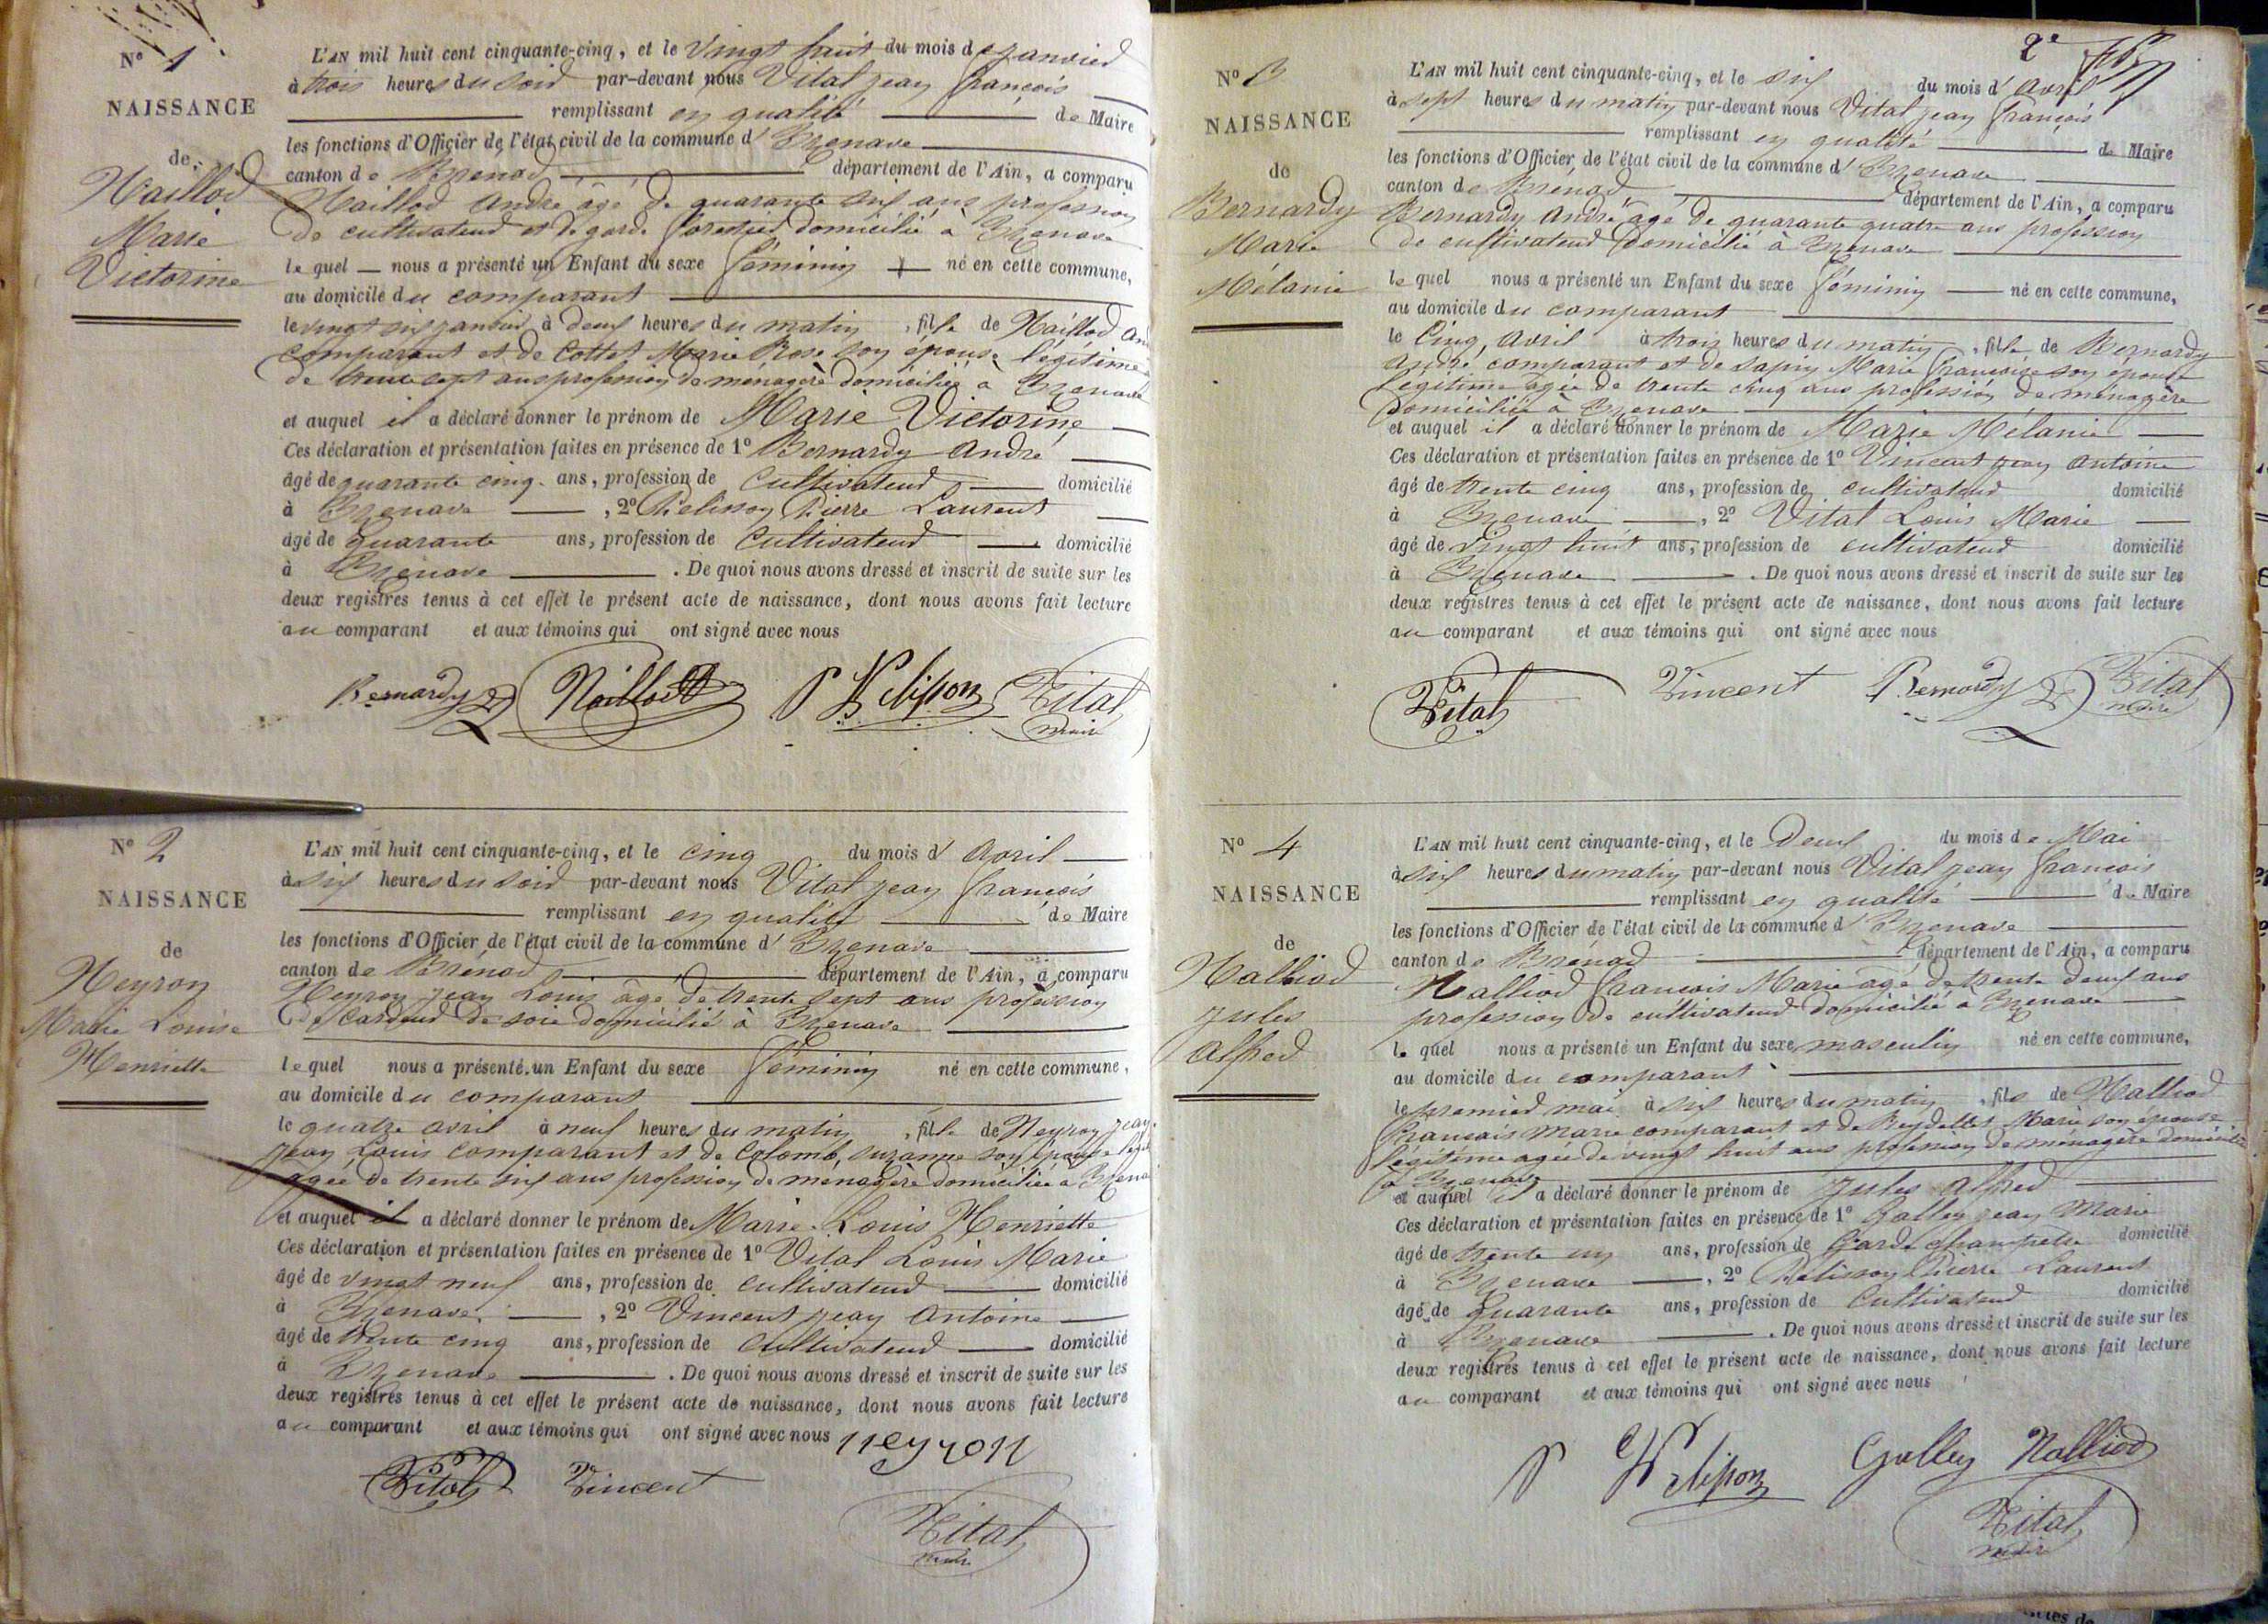 N° 1
NAISSANCE
de
Naillod
Marie
Victorine
L'AN mil huit cent cinquante-cinq, et le vingt huit du mois de janvier
à trois heures du soir par-devant nous Vital jean françois
remplissant en qualité de Maire
les fonctions d'Officier de l'état civil de la commune d' Izenave
canton de Brénod département de l'Ain, a comparu
Naillod André âgé de quarante six ans profession
de cultivateur et de garde forestier domicilié à Izenave
lequel nous a présenté un Enfant du sexe féminin né en cette commune,
au domicile du comparant
le vingt six janvier à deux heures du matin, fille de Naillod An
comparant et de Cottet Marie Rose son épouse légitime
de trente sept ans profession de ménagère domiciliée à Izenave
et auquel il a déclaré donner le prénom de Marie Victorine
Ces déclaration et présentation faites en présence de 1° Bernardy André
âgé de quarante cinq ans, profession de cultivateur domicilié
à Izenave, 2° Pelisson Pierre Laurent
âgé de quarante ans, profession de cultivateur domicilié
à Izenave. De quoi nous avons dressé et inscrit de suite sur les
deux registres tenus à cet effet le présent acte de naissance, dont nous avons fait lecture
au comparant et aux témoins qui ont signé avec nous
Bernardy Naillod P Pelisson Vital
maire
N° 2
NAISSANCE
de
Neyron
Marie Louise
Henriette
L'AN mil huit cent cinquante-cinq, et le cinq du mois d' avril
à six heures du soir par-devant nous Vital jean françois
remplissant en qualité de Maire
les fonctions d'Officier de l'état civil de la commune d' Izenave
canton de Brénod département de l'Ain, a comparu
Neyron jean Louis âgé de trente sept ans profession
de cardeur de soie domicilié à Izenave
lequel nous a présenté un Enfant du sexe féminin né en cette commune,
au domicile du comparant
le quatre avril à neuf heures du matin, fille de Neyron jean
jean Louis comparant et de Colomb suzanne son épouse légit
agée de trente six ans profession de ménagère domiciliée à Izena
et auquel il a déclaré donner le prénom de Marie Louis Henriette
Ces déclaration et présentation faites en présence de 1° Vital Louis Marie
âgé de vingt neuf ans, profession de cultivateur domicilié
à Izenave, 2° Vincent jean antoine
âgé de trente cinq ans, profession de cultivateur domicilié
à Izenave. De quoi nous avons dressé et inscrit de suite sur les
deux registres tenus à cet effet le présent acte de naissance, dont nous avons fait lecture
au comparant et aux témoins qui ont signé avec nous neyron
Vital Vincent
Vital
maire
2e
N° 3
NAISSANCE
de
Bernardy
Marie
Mélanie
L'AN mil huit cent cinquante-cinq, et le six du mois d' avril
à sept heures du matin par-devant nous Vital jean françois
remplissant en qualité de Maire
les fonctions d'Officier de l'état civil de la commune d' Izenave
canton de Brénod département de l'Ain, a comparu
Bernardy André âgé de quarante quatre ans profession
de cultivateur domicilié à Izenave
lequel nous a présenté un Enfant du sexe féminin né en cette commune,
au domicile du comparant
le cinq avril à trois heures du matin, fille de Bernardy
André comparant et de Sapin Marie françoise son épouse
légitime âgée de trente cinq ans profession de ménagère
domiciliée à Izenave
et auquel il a déclaré donner le prénom de Marie Mélanie
Ces déclaration et présentation faites en présence de 1° Vincent jean antoine
âgé de trente cinq ans, profession de cultivateur domicilié
à Izenave, 2° Vital Louis Marie
âgé de vingt huit ans, profession de cultivateur domicilié
à Izenave. De quoi nous avons dressé et inscrit de suite sur les
deux registres tenus à cet effet le présent acte de naissance, dont nous avons fait lecture
au comparant et aux témoins qui ont signé avec nous
Vital Vincent Bernardy Vital
maire
N° 4
NAISSANCE
de
Nalliod
jules
alfred
L'AN mil huit cent cinquante-cinq, et le deux du mois de Mai
à six heures du matin par-devant nous Vital jean françois
remplissant en qualité de Maire
les fonctions d'Officier de l'état civil de la commune d' Izenave
canton de Brénod département de l'Ain, a comparu
Nalliod françois Marie âgé de trente deux ans
profession de cultivateur domicilié à Izenave
lequel nous a présenté un Enfant du sexe masculin né en cette commune,
au domicile du comparant
le premier mai à six heures du matin, fils de Nalliod
français Marie comparant et de Reydellet Marie son épouse
légitime agée de vingt huit ans profession de ménagère domiciliée
à Izenave
et auquel il a déclaré donner le prénom de jules alfred
Ces déclaration et présentation faites en présence de 1° Galley jean Marie
âgé de trente un ans, profession de Garde champêtre domicilié
à Izenave, 2° Pelisson Pierre Laurent
âgé de quarante ans, profession de cultivateur domicilié
à Izenave. De quoi nous avons dressé et inscrit de suite sur les
deux registres tenus à cet effet le présent acte de naissance, dont nous avons fait lecture
au comparant et aux témoins qui ont signé avec nous
P Pelisson Galley Nalliod
Vital
maire